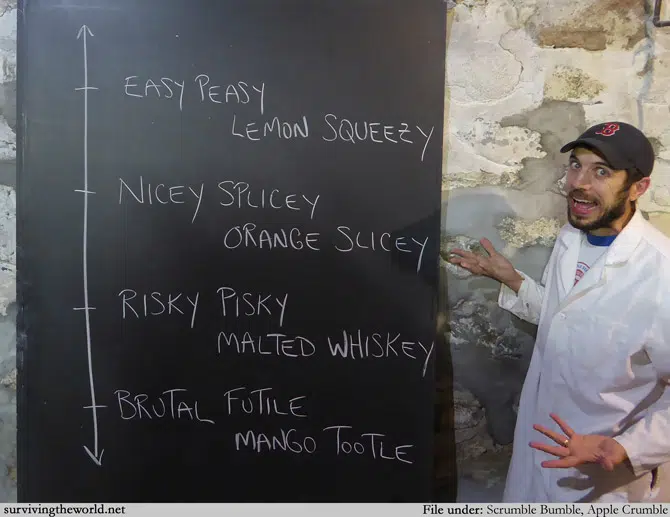 EASY PEASY
LEMON SQUEEZY
NICEY SPLICEY
ORANGE SLICEY
RISKY PISKY
MALTED WHISKEY
BRUTAL FUTILE
MANGO TOOTLE
B
survivingtheworld.net
File under: Scrumble Bumble, Apple Crumble